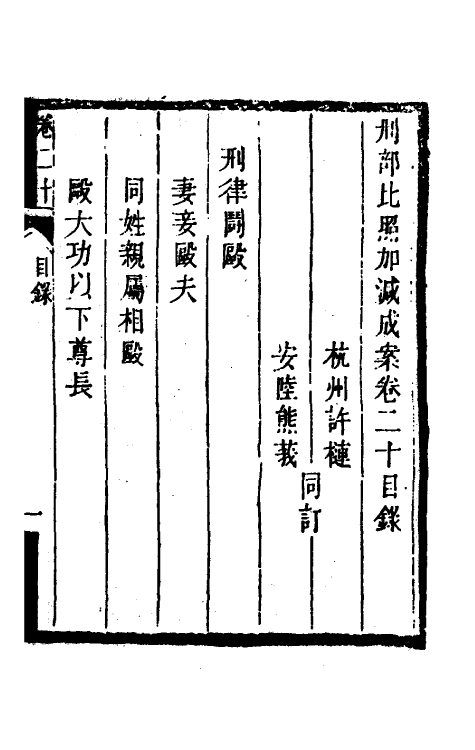 刑部比照加減成案卷二十目錄
杭州許槤
安陸熊莪
同訂
刑律鬭毆
妻妾毆夫
同姓親屬相毆
毆大功以下尊長
卷二十
目錄
一